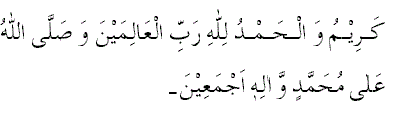 كَـرِيْـمُ وَ الْـحَمْـدُ لِلّٰهِ رَبِّ الْعَالِمَيْنَ وَ صَلَّى اللهُ
عَلٰى مُحَمَّدٍ وَّ اٰلِهٖ اَجْمَعِيْنَ۔